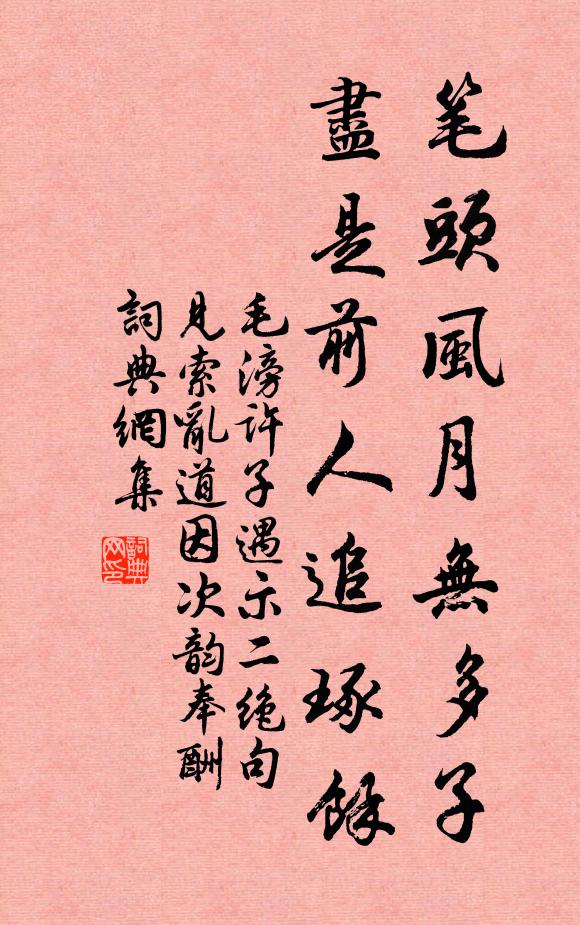 笔頭風月無多子
盡是前人追琢餘
毛滂許子遇示二絶句
見索亂道因次韵奉酬
詞典網集
詞典
网印